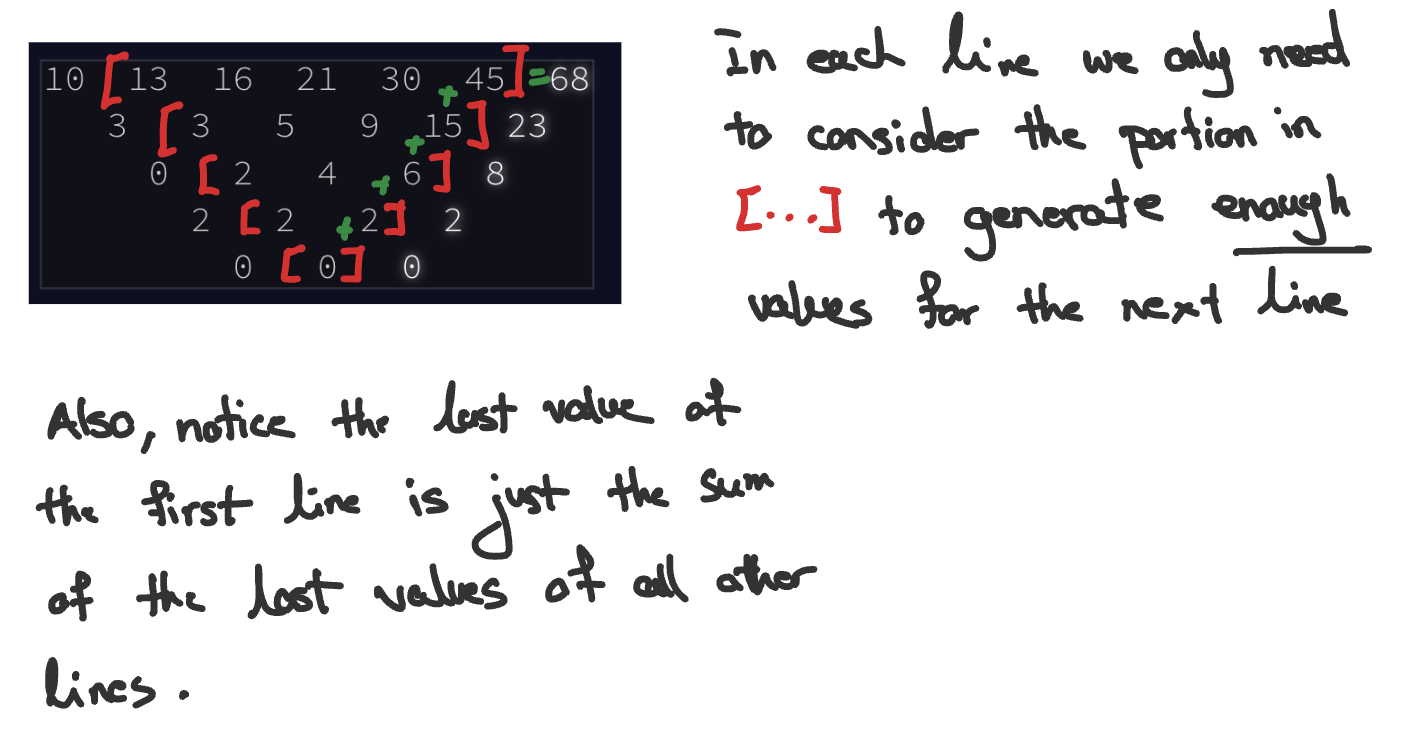 10 [ 13 16 21 30 + 45 ] = 68
3 [ 3 5 9 + 15 ] 23
0 [ 2 4 + 6 ] 8
2 [ 2 + 2 ] 2
0 [ 0 ] 0
In each line we only need
to consider the portion in
[...] to generate enough
values for the next line
Also, notice the last value of
the first line is just the sum
of the last values of all other
lines.